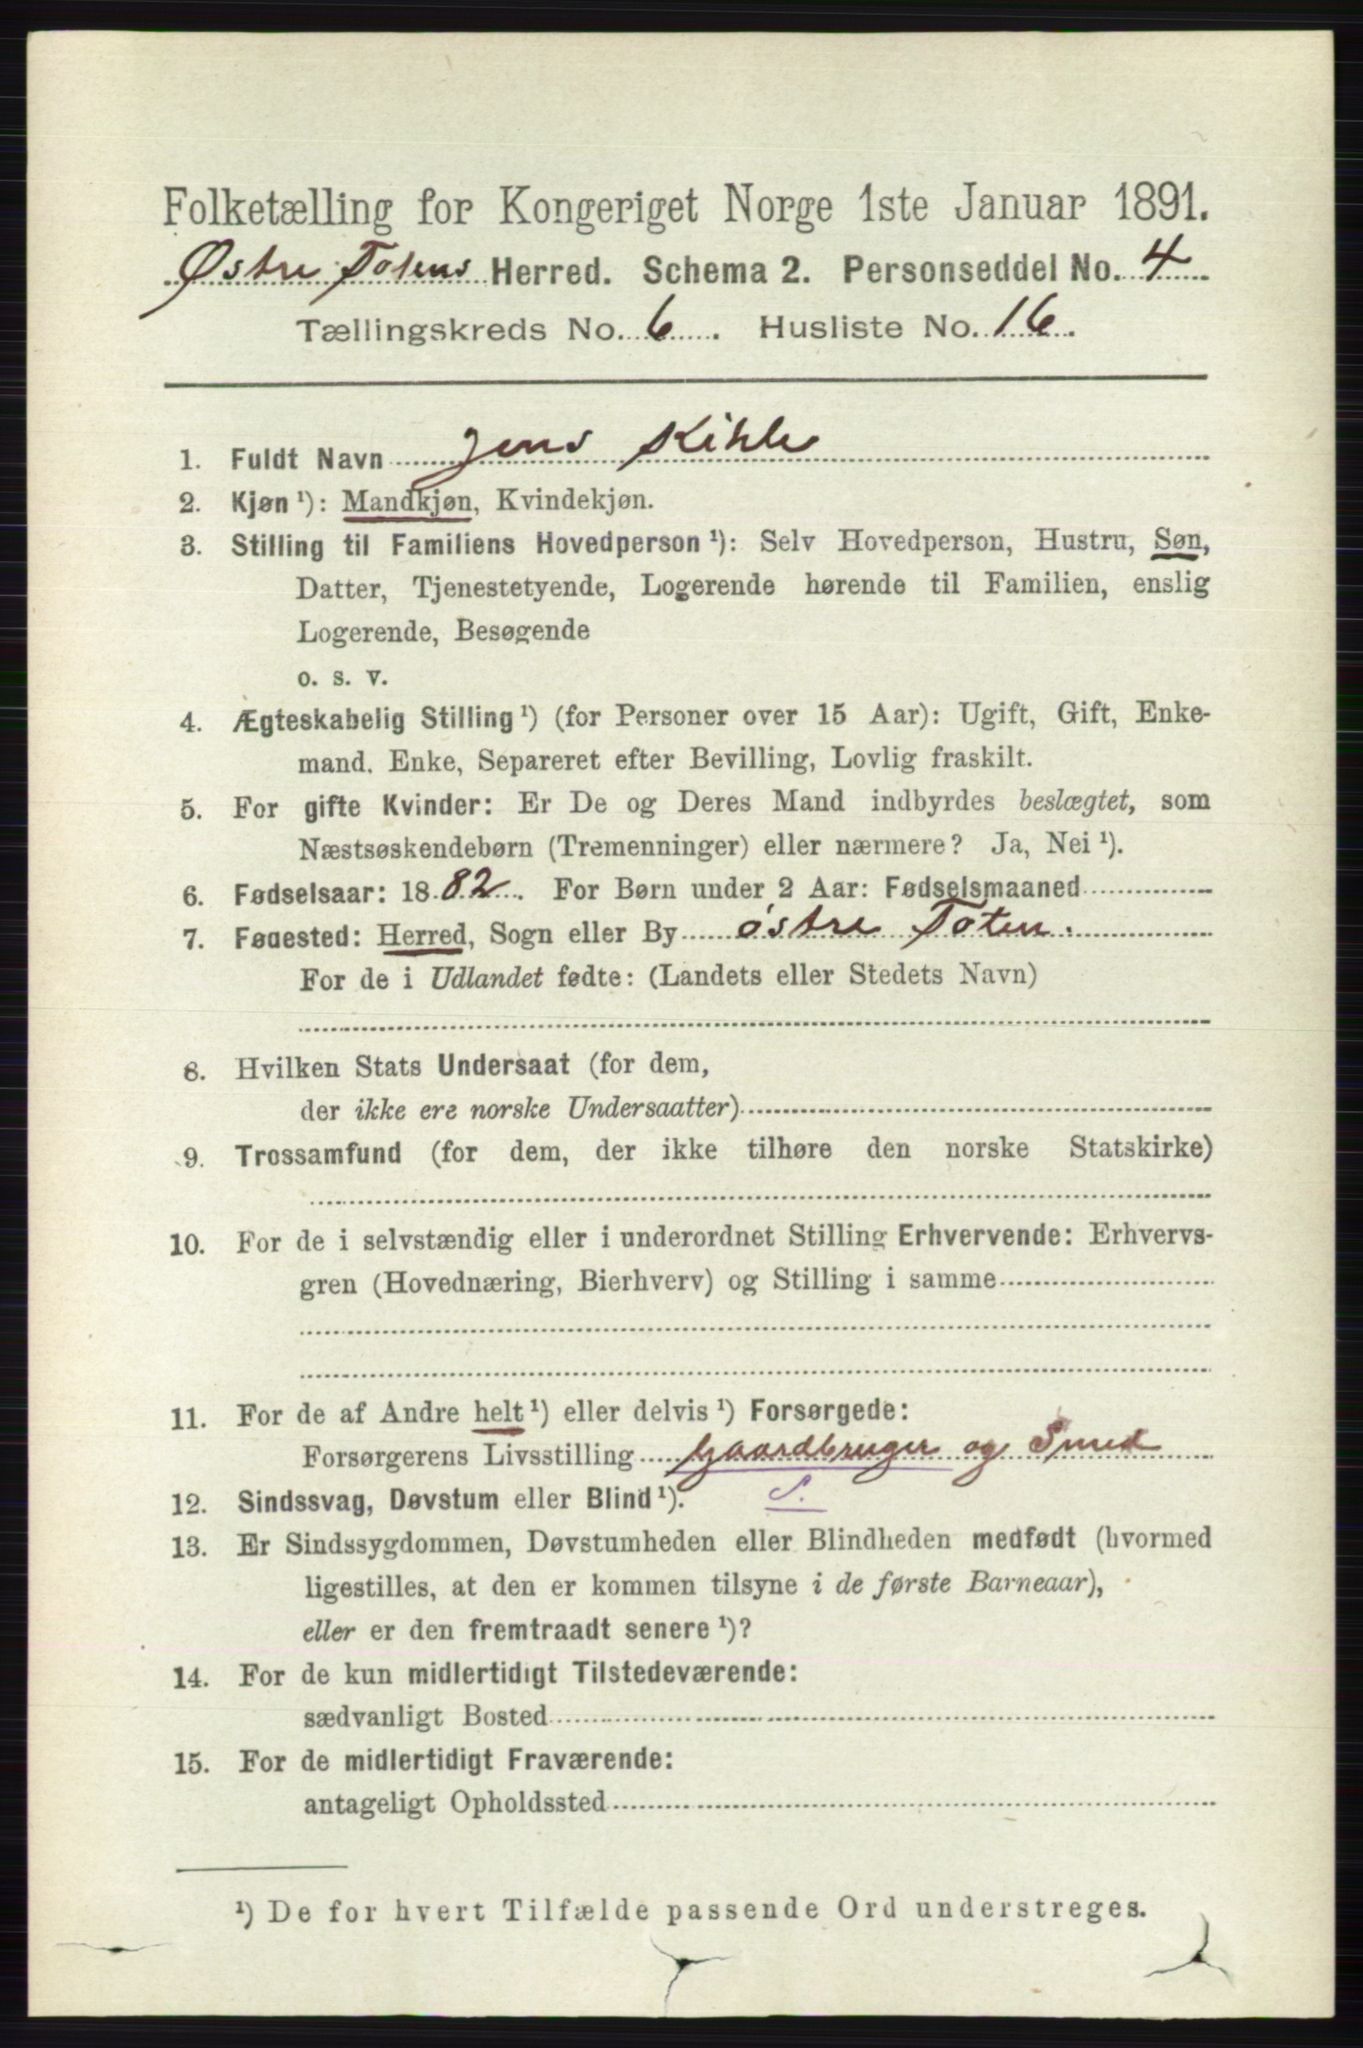 Folketælling for Kongeriget Norge 1ste Januar 1891.
Østre Totens Herred. Schema 2. Personseddel No. 4
Tællingskreds No. 6. Husliste No. 16.
1. Fuldt Navn Jens Kihle
2. Kjøn ¹): Mandkjøn, Kvindekjøn.
3. Stilling til Familiens Hovedperson ¹): Selv Hovedperson, Hustru, Søn,
Datter, Tjenestetyende, Logerende hørende til Familien, enslig
Logerende, Besøgende
o. s. v.
4. Ægteskabelig Stilling ¹) (for Personer over 15 Aar): Ugift, Gift, Enke-
mand. Enke, Separeret efter Bevilling, Lovlig fraskilt.
5. For gifte Kvinder: Er De og Deres Mand indbyrdes beslægtet, som
Næstsøskendebørn (Tremenninger) eller nærmere? Ja, Nei ¹).
6. Fødselsaar: 1882. For Børn under 2 Aar: Fødselsmaaned
7. Fødested: Herred, Sogn eller By østre Toten.
For de i Udlandet fødte: (Landets eller Stedets Navn)
8. Hvilken Stats Undersaat (for dem,
der ikke ere norske Undersaatter)
9. Trossamfund (for dem, der ikke tilhøre den norske Statskirke)
10. For de i selvstændig eller i underordnet Stilling Erhvervende: Erhvervs-
gren (Hovednæring, Bierhverv) og Stilling i samme
11. For de af Andre helt ¹) eller delvis ¹) Forsørgede:
Forsørgerens Livsstilling Gaardbruger og Smed
12. Sindssvag, Døvstum eller Blind ¹). S.
13. Er Sindssygdommen, Døvstumheden eller Blindheden medfødt (hvormed
ligestilles, at den er kommen tilsyne i de første Barneaar),
eller er den fremtraadt senere ¹)?
14. For de kun midlertidigt Tilstedeværende:
sædvanligt Bosted
15. For de midlertidigt Fraværende:
antageligt Opholdssted
¹) De for hvert Tilfælde passende Ord understreges.